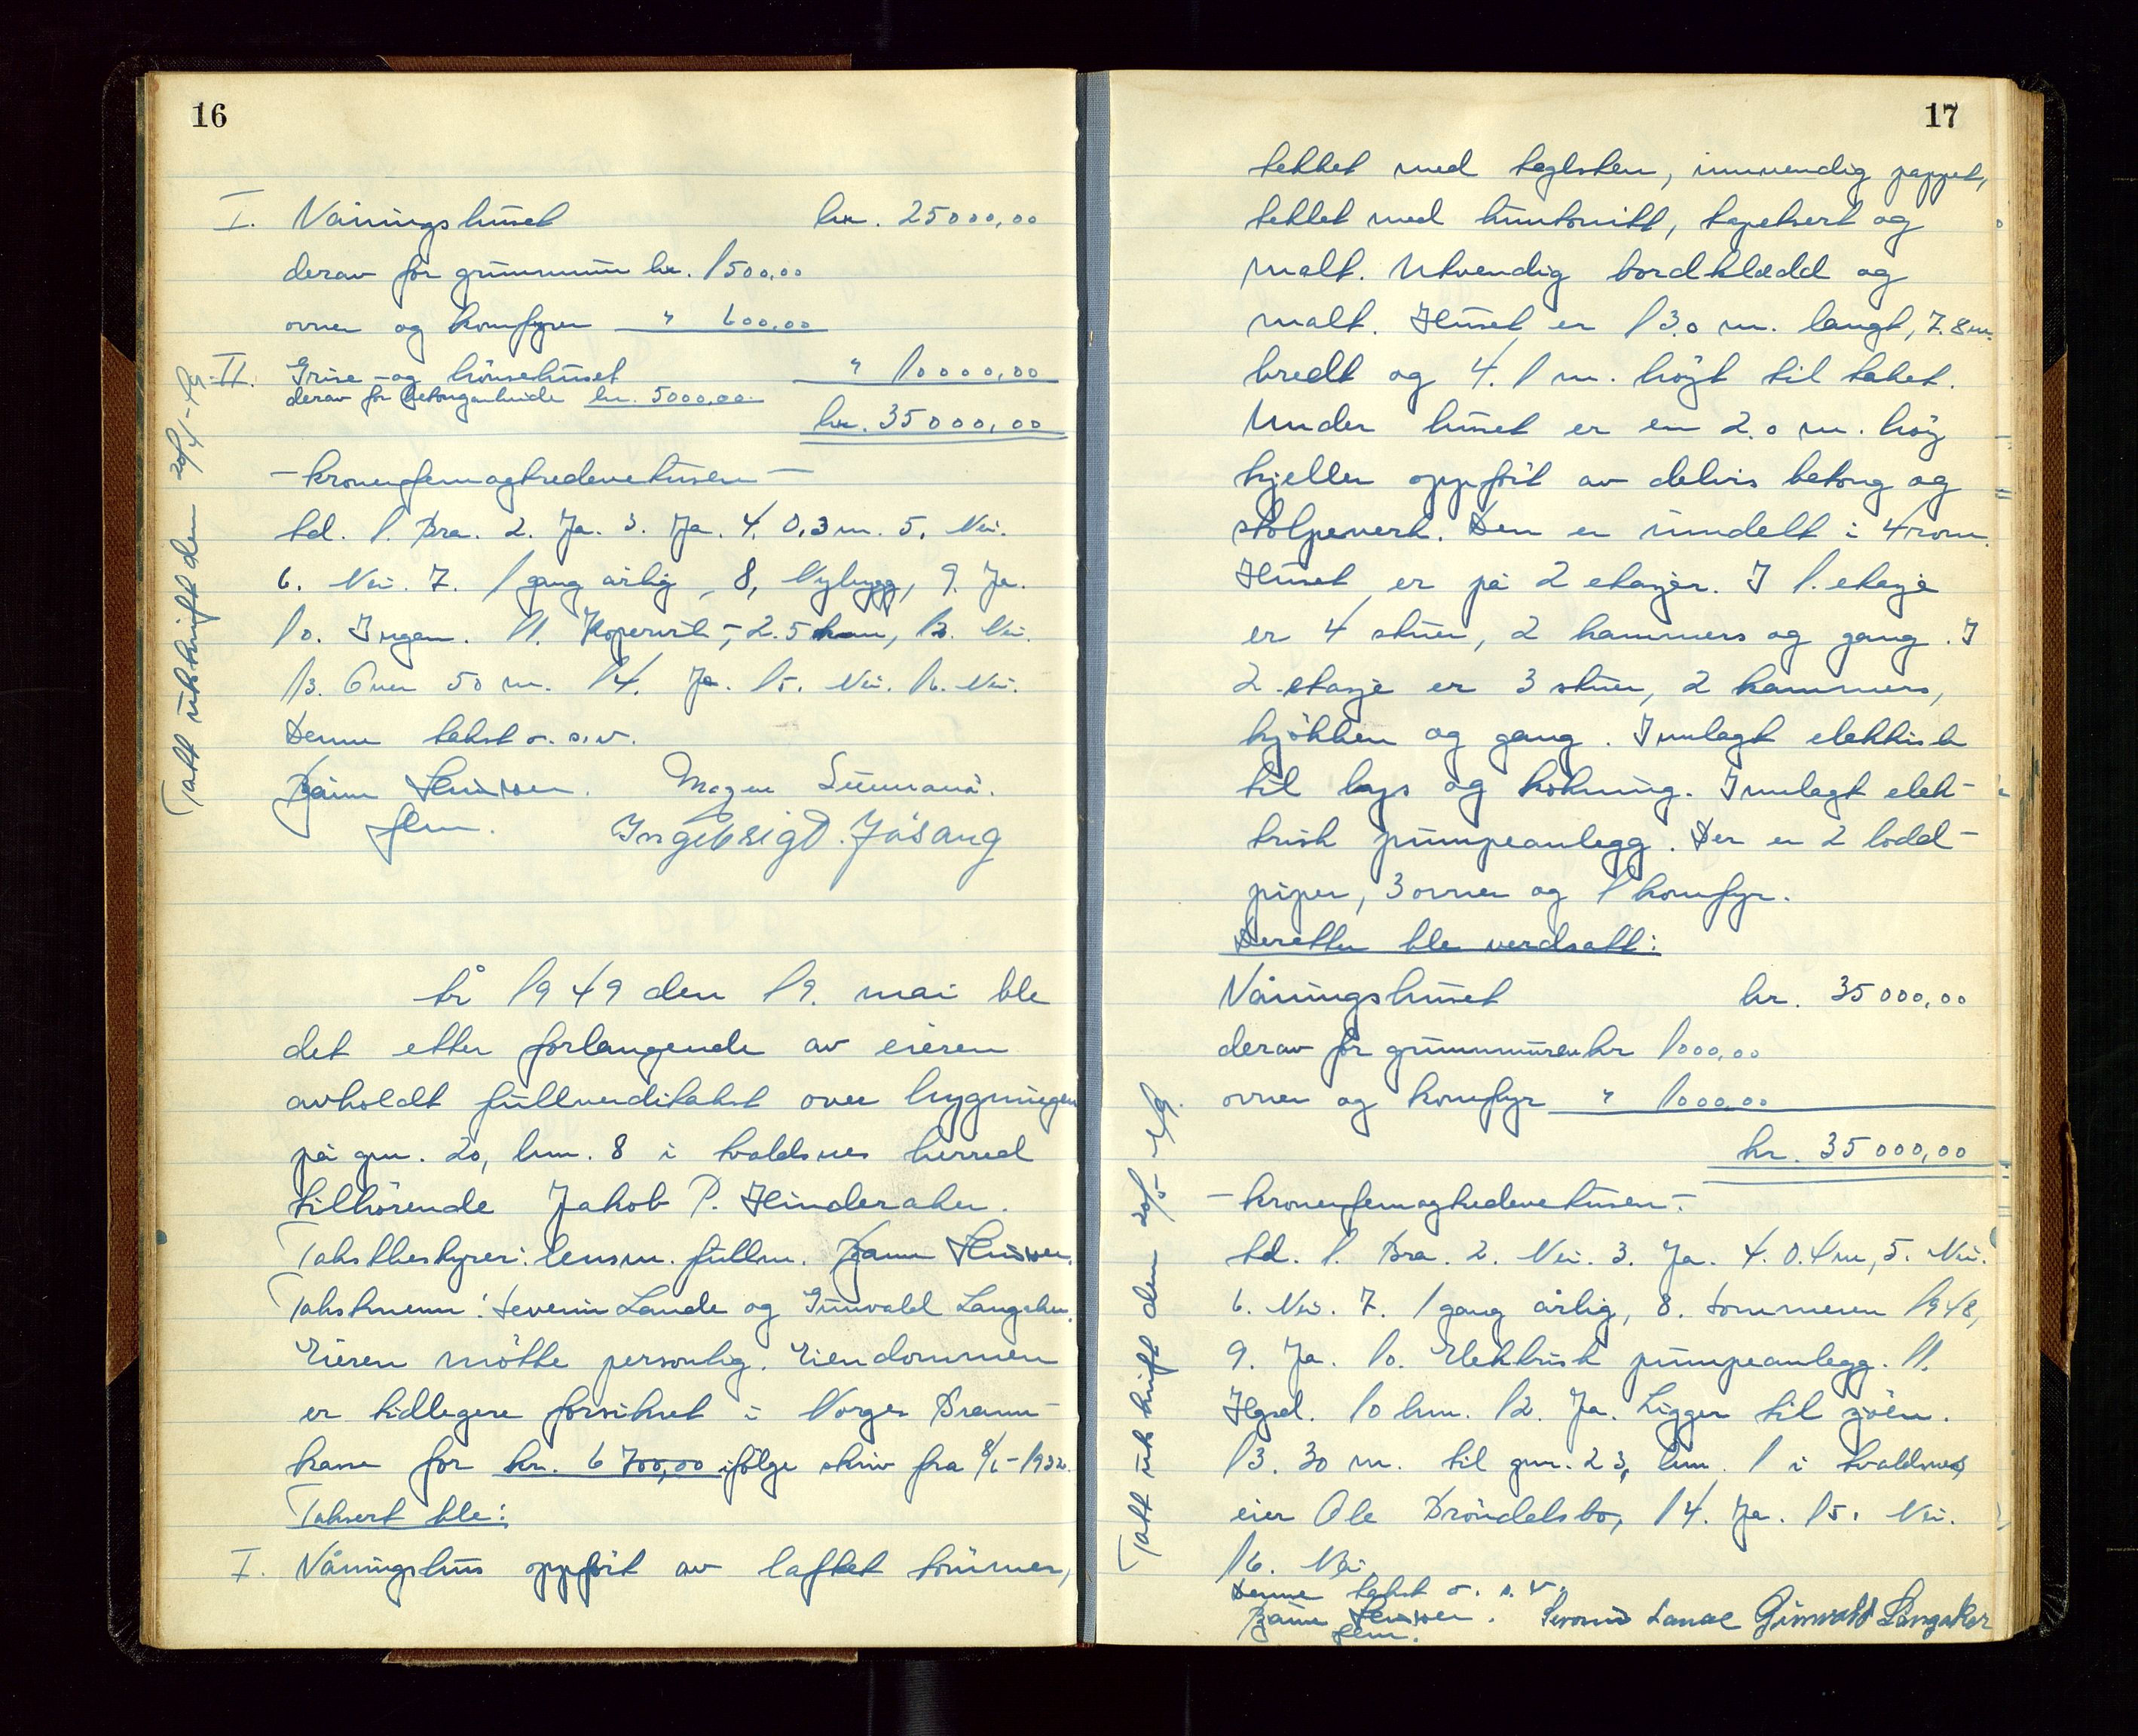 16
I. Våningshuset kr. 25000,00
derav for grunnmur kr. 1500,00
ovner og komfyrer " 600,00
II. Grise- og hönsehuset " 10000,00
derav for betongarbeide kr. 5000,00
kr. 35000,00
- kronerfemogtredevetusen -
Sd. 1. Bra. 2. Ja. 3. Ja. 4. 0,3 m. 5. Nei.
6. Nei. 7. 1 gang årlig, 8, Nybygg, 9. Ja.
10. Ingen. 11. Kopervik, 2.5 km, 12. Nei.
13. Over 50 m. 14. Ja. 15. Nei. 16. Nei.
Denne takst o. s. v.
Bjarne Magne
flm. Ingebrigt Jösang
Tatt utskrift den 20/4-49.
År 1949 den 19. mai ble
det etter forlangende av eieren
avholdt fullverditakst over bygningen
på gnr. 20, bnr. 8 i Avaldsnes herred
tilhörende Jakob P. Hinderaker.
Takstbestyrer: lensm. fullm. Bjarne
Takstmenn: Severin Lande og Gunvald Langaker.
Eieren mötte personlig. Eiendommen
er tidligere forsikret i Norges Brann-
kasse for kr. 6700,00 ifölge skriv fra 8/6-1932.
Taksert ble:
I. Våningshus oppfört av laftet tömmer,
17
tekket med teglsten, innvendig pappet,
tettet med huntonitt, tapetsert og
malt. Utvendig bordklædd og
malt. Huset er 13.0 m. langt, 7.8 m.
bredt og 4.1 m. höyt til taket.
Under huset er en 2.0 m. höy
kjeller oppfört av delvis betong og
stolpeverk. Den er inndelt i 4 rom.
Huset er på 2 etasjer. I 1. etasje
er 4 stuer, 2 kammers og gang. I
2. etasje er 3 stuer, 2 kammers,
kjökken og gang. Innlagt elektrisk
til lys og kokning. Innlagt elek-
trisk pumpeanlegg. Der er 2 lodd-
piper, 3 ovner og 1 komfyr.
Deretter ble verdsatt:
Våningshuset kr. 35000,00
derav for grunnmuren kr 1000,00
ovner og komfyr " 1000,00
kr. 35000,00
- kronerfemogtredevetusen -
Sd. 1. Bra. 2. Nei. 3. Ja. 4. 0.4 m, 5. Nei.
6. Nei. 7. 1 gang årlig, 8. Sommeren 1948,
9. Ja. 10. Elektrisk pumpeanlegg. 11.
Hgsd. 10 km. 12. Ja. Ligger til sjöen.
13. 30 m. til gnr. 23, bnr. 1 i Avaldsnes,
eier Ole Bröndelsbo, 14. Ja. 15. Nei.
16. Nei
Denne takst o. s. v.
Bjarne Severin Lande Gunvald Langaker
flm.
Tatt utskrift den 20/5-49.